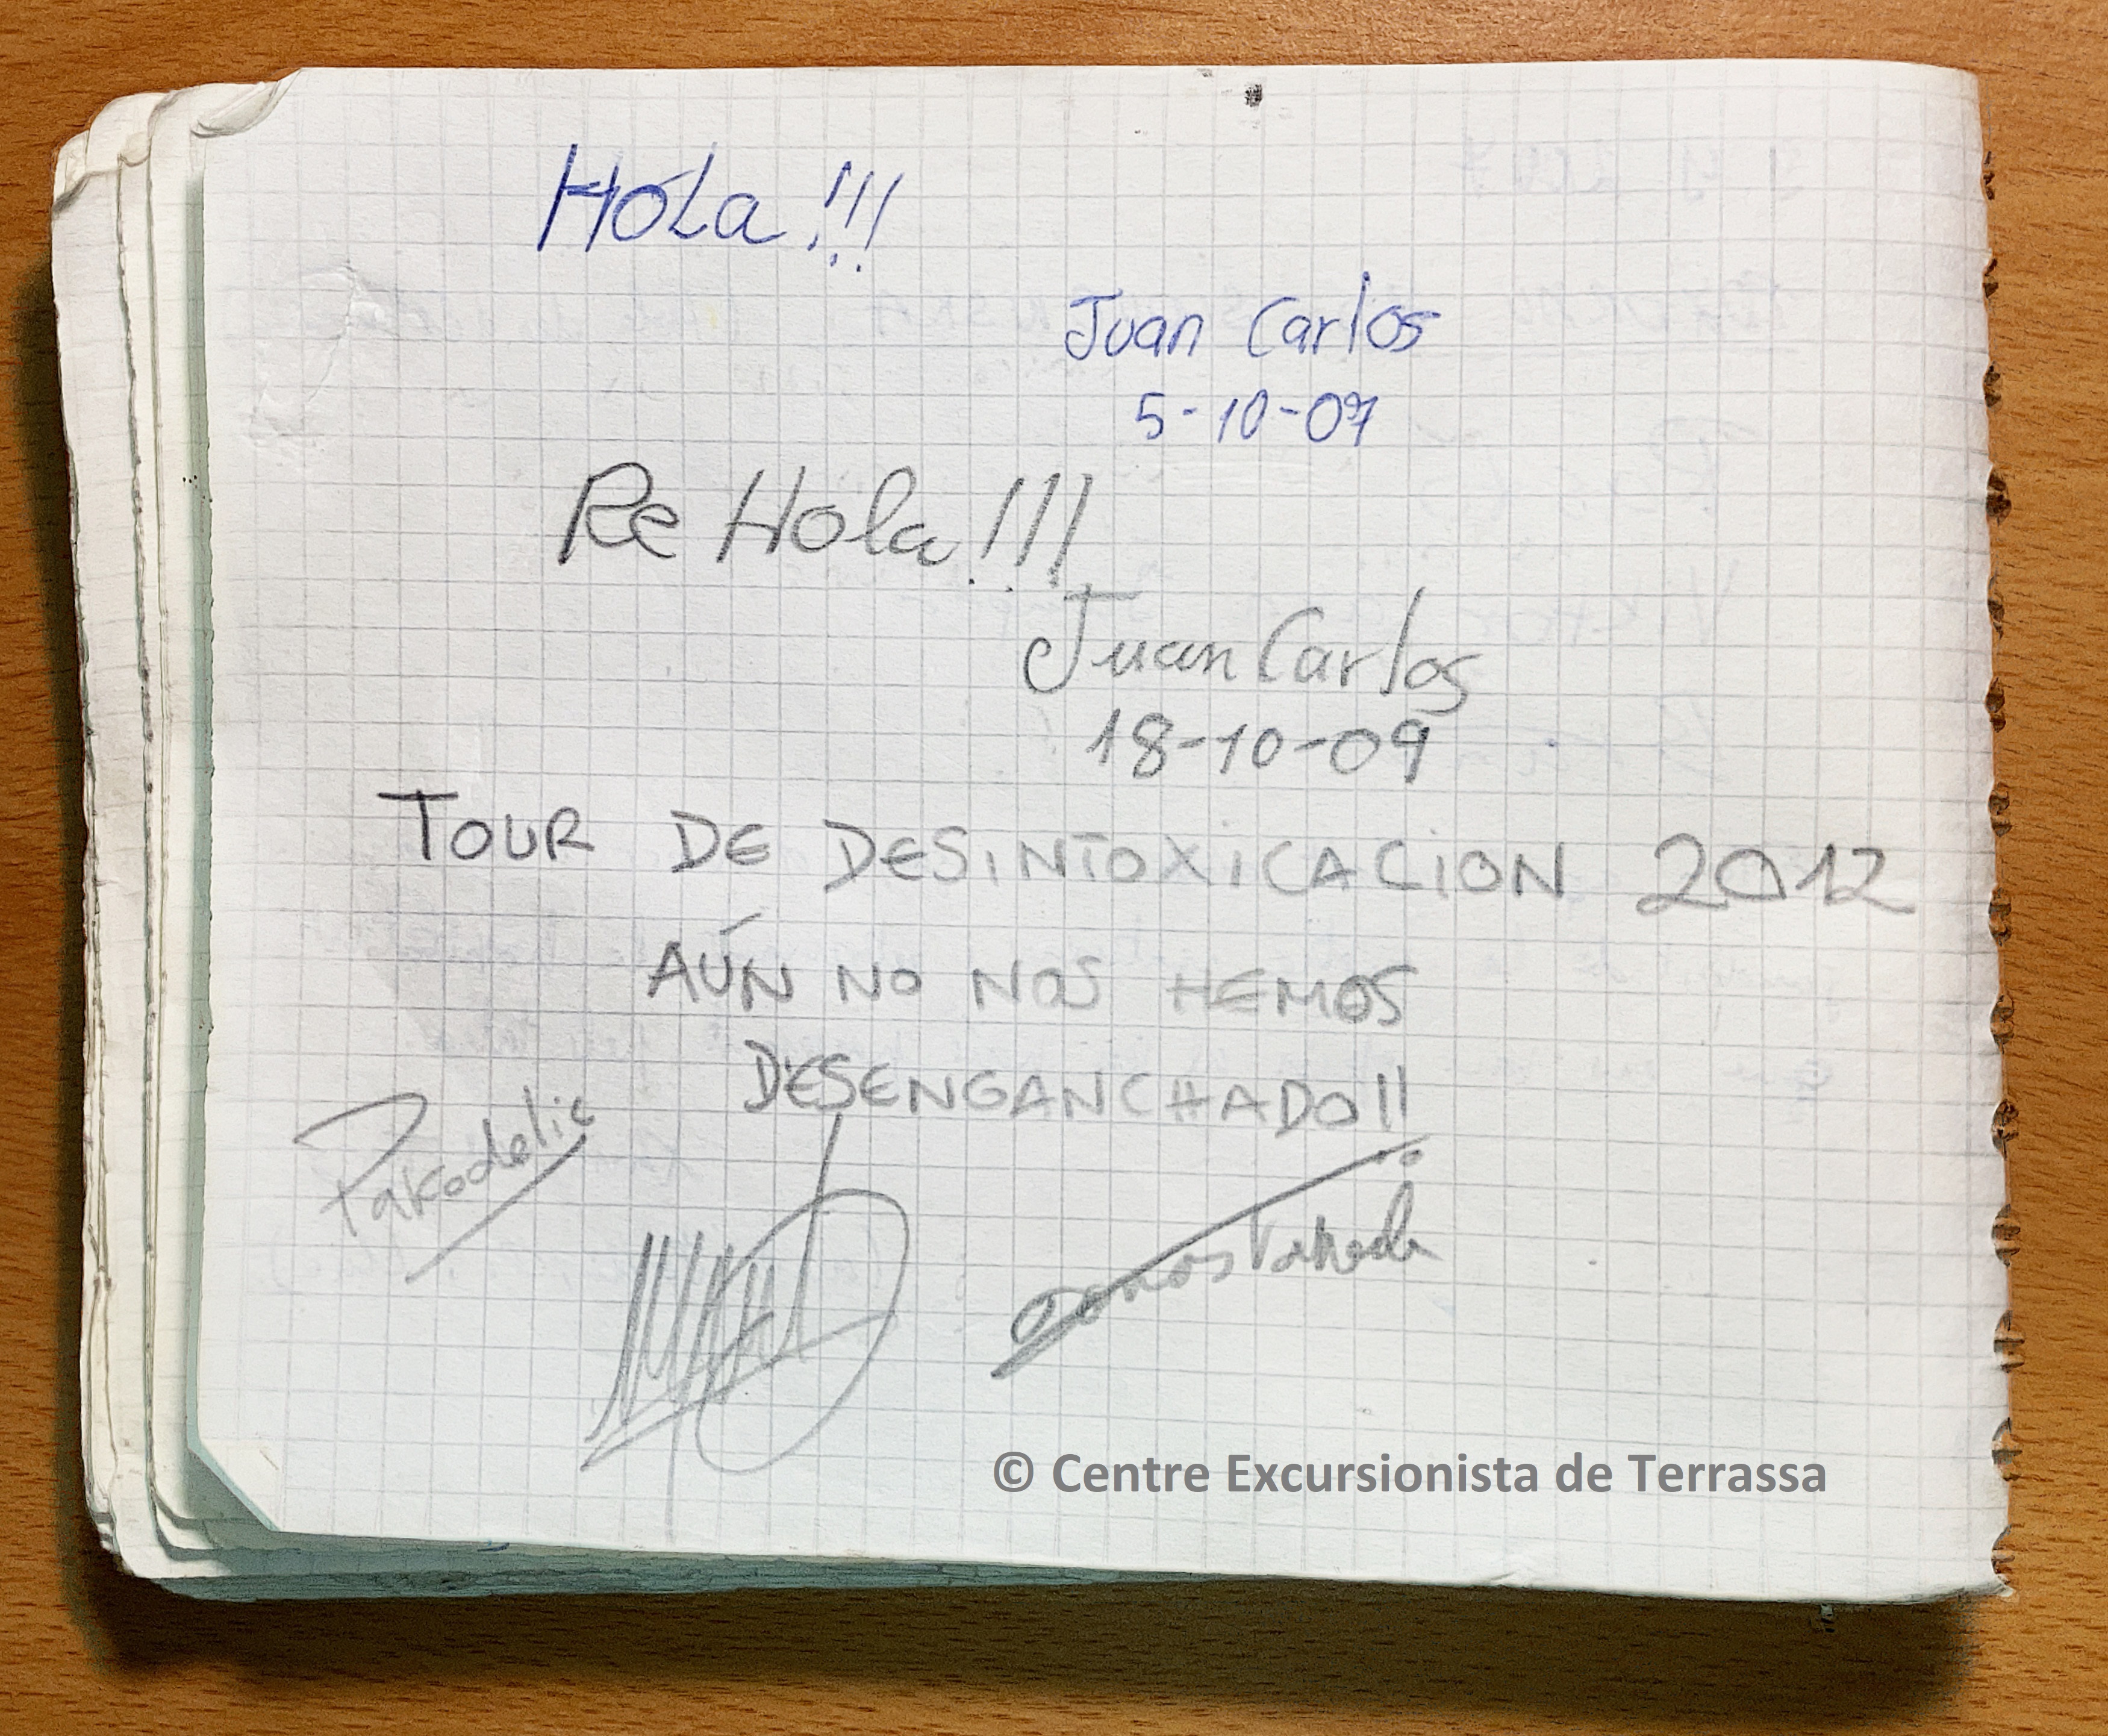 Hola!!!
Juan Carlos
5-10-07
Re Hola!!!
Juan Carlos
18-10-09
TOUR DE DESINTOXICACION 2012
AÚN NO NOS HEMOS
DESENGANCHADO!!
Pakodelic
© Centre Excursionista de Terrassa